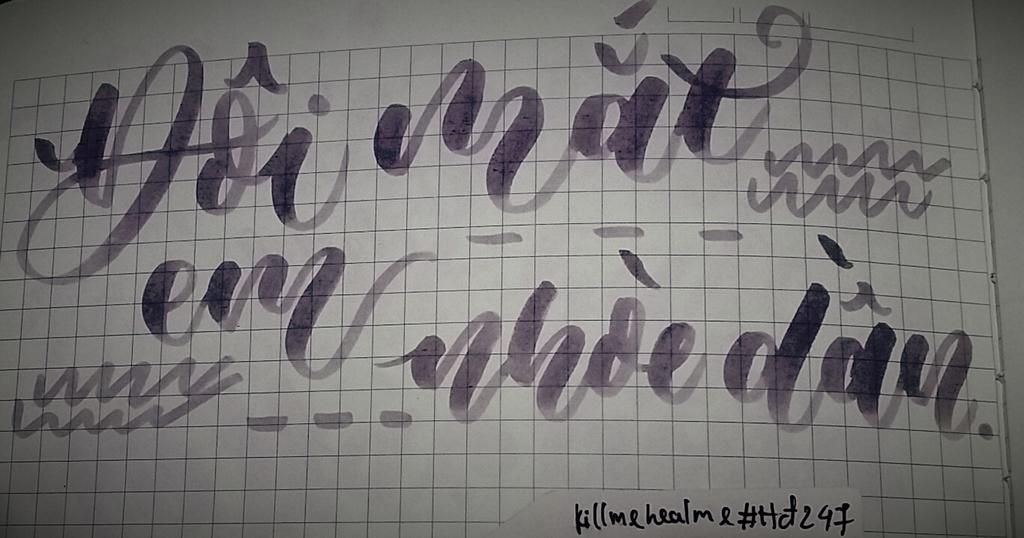 Đôi mắt
em nhòe dần.
killmehealme#Hd247